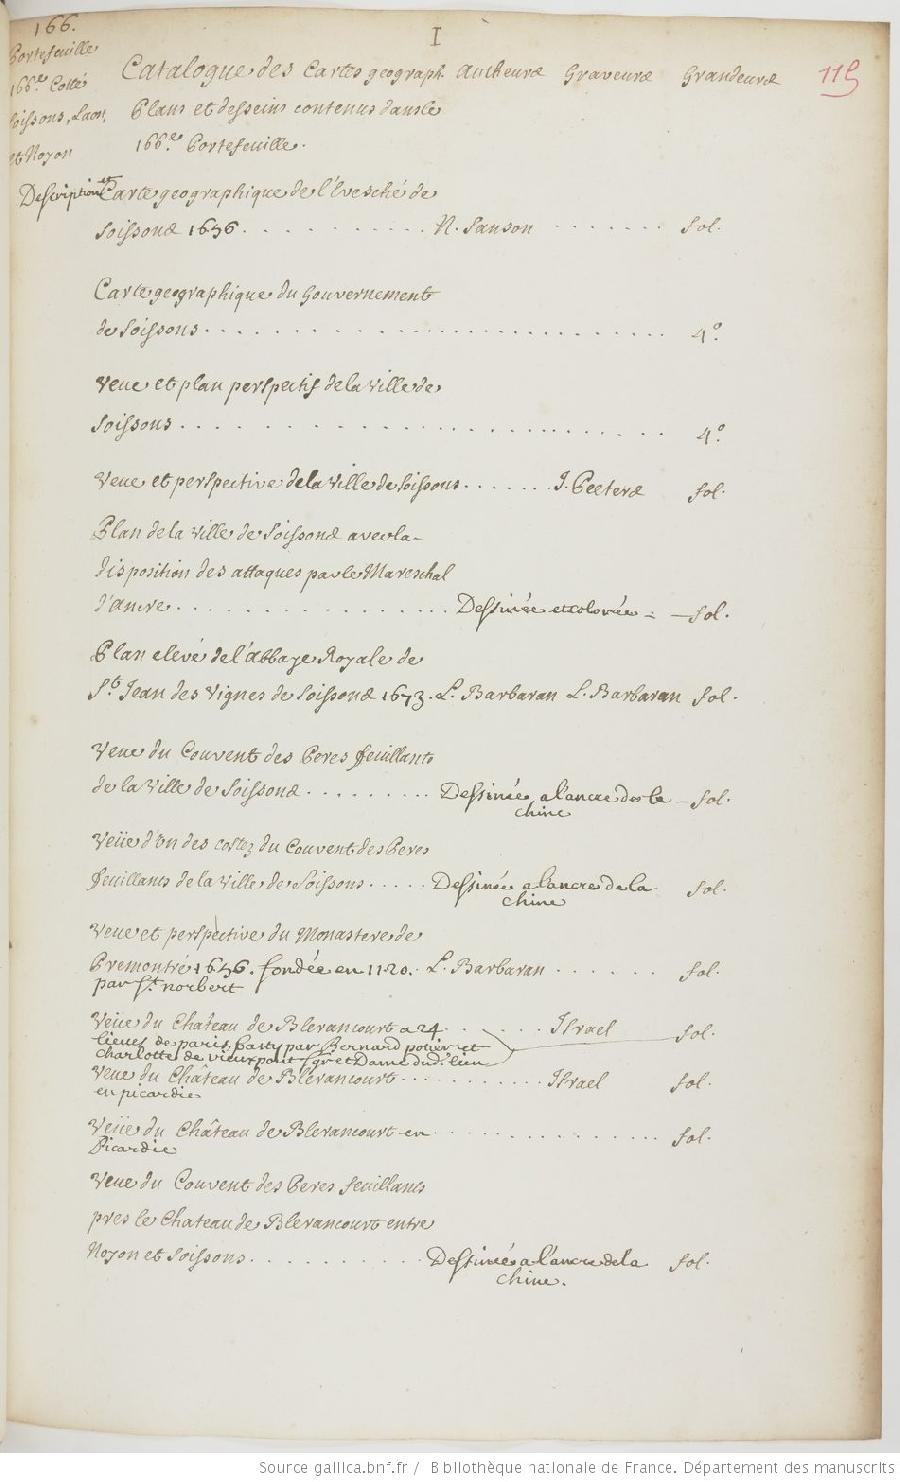 166.
Portefeuille
166.e Costé
Soissons, Laon,
et Noyon
Description
I
115
Catalogue des Cartes geograph. Autheurs Graveurs Grandeurs
Plans et desseins contenus dans le
166.e Portefeuille.
Carte geographique de l'Evesché de
Soissons 1656. . . . . . . . . . . N. Sanson . . . . . . . fol.
Carte geographique du Gouvernement
de Soissons . . . . . . . . . . . . . . . . . . . . . . . 4.o
Veue et plan perspectif de la Ville de
Soissons . . . . . . . . . . . . . . . . . . . . . . . 4.o
Veue et perspective de la Ville de Soissons . . . . . . J. Peeters fol.
Plan de la Ville de Soissons avec la
disposition des attaques par le Mareschal
d'Ancre . . . . . . . . . . . . . . . . Dessinée et colorée - fol.
Plan elevé de l'Abbaye Royale de
St. Jean des Vignes de Soissons 1673. L. Barbaran L. Barbaran fol.
Veue du Couvent des Peres feuillants
de la Ville de Soissons . . . . . . . . . Dessinée a l'ancre de la fol.
chine
Veüe d'un des costez du Couvent des Peres
feuillants de la Ville de Soissons . . . . . Dessinée a l'ancre de la fol.
chine
Veue et perspective du Monastere de
Premontré 1656. fondée en 1120. L. Barbaran . . . . . . fol.
par St. norbert
Veüe du Chateau de Blerancourt a 24 . . . . . . Israel fol.
lieues de paris, basty par Bernard potier et
charlotte de vieuxpont sgr et Dame dud. lieu
Veue du Château de Blerancourt . . . . . . . . . . . Israel fol.
en picardie
Veüe du Château de Blerancourt en . . . . . . . . . . . . . . . . fol.
Picardie
Veue du Couvent des Peres feuillants
pres le Chateau de Blerancourt entre
Noyon et Soissons . . . . . . . . . . . Dessinée a l'ancre de la fol.
chine.
Source gallica.bnf.fr / Bibliothèque nationale de France. Département des manuscrits